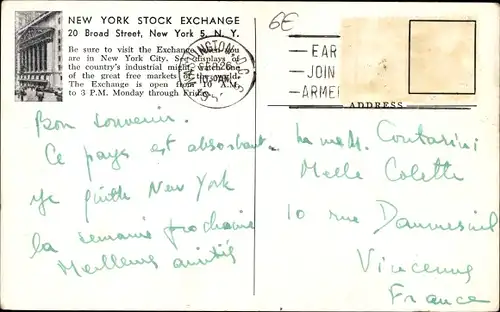 NEW YORK STOCK EXCHANGE
20 Broad Street, New York 5, N. Y.
Be sure to visit the Exchange when you
are in New York City. See displays of
the country's industrial might, watch one
of the great free markets of the world.
The Exchange is open from 10 A.M.
to 3 P.M. Monday through Friday.
6€
WASHINGTON, D.C.
EAR
JOIN
ARME
ADDRESS
Bon souvenir.
Ce pays est absorbant.
je quitte New York
la semaine prochaine
Meilleures amitiés
Contarini
Melle Colette
10 rue Daumesnil
Vincennes
France